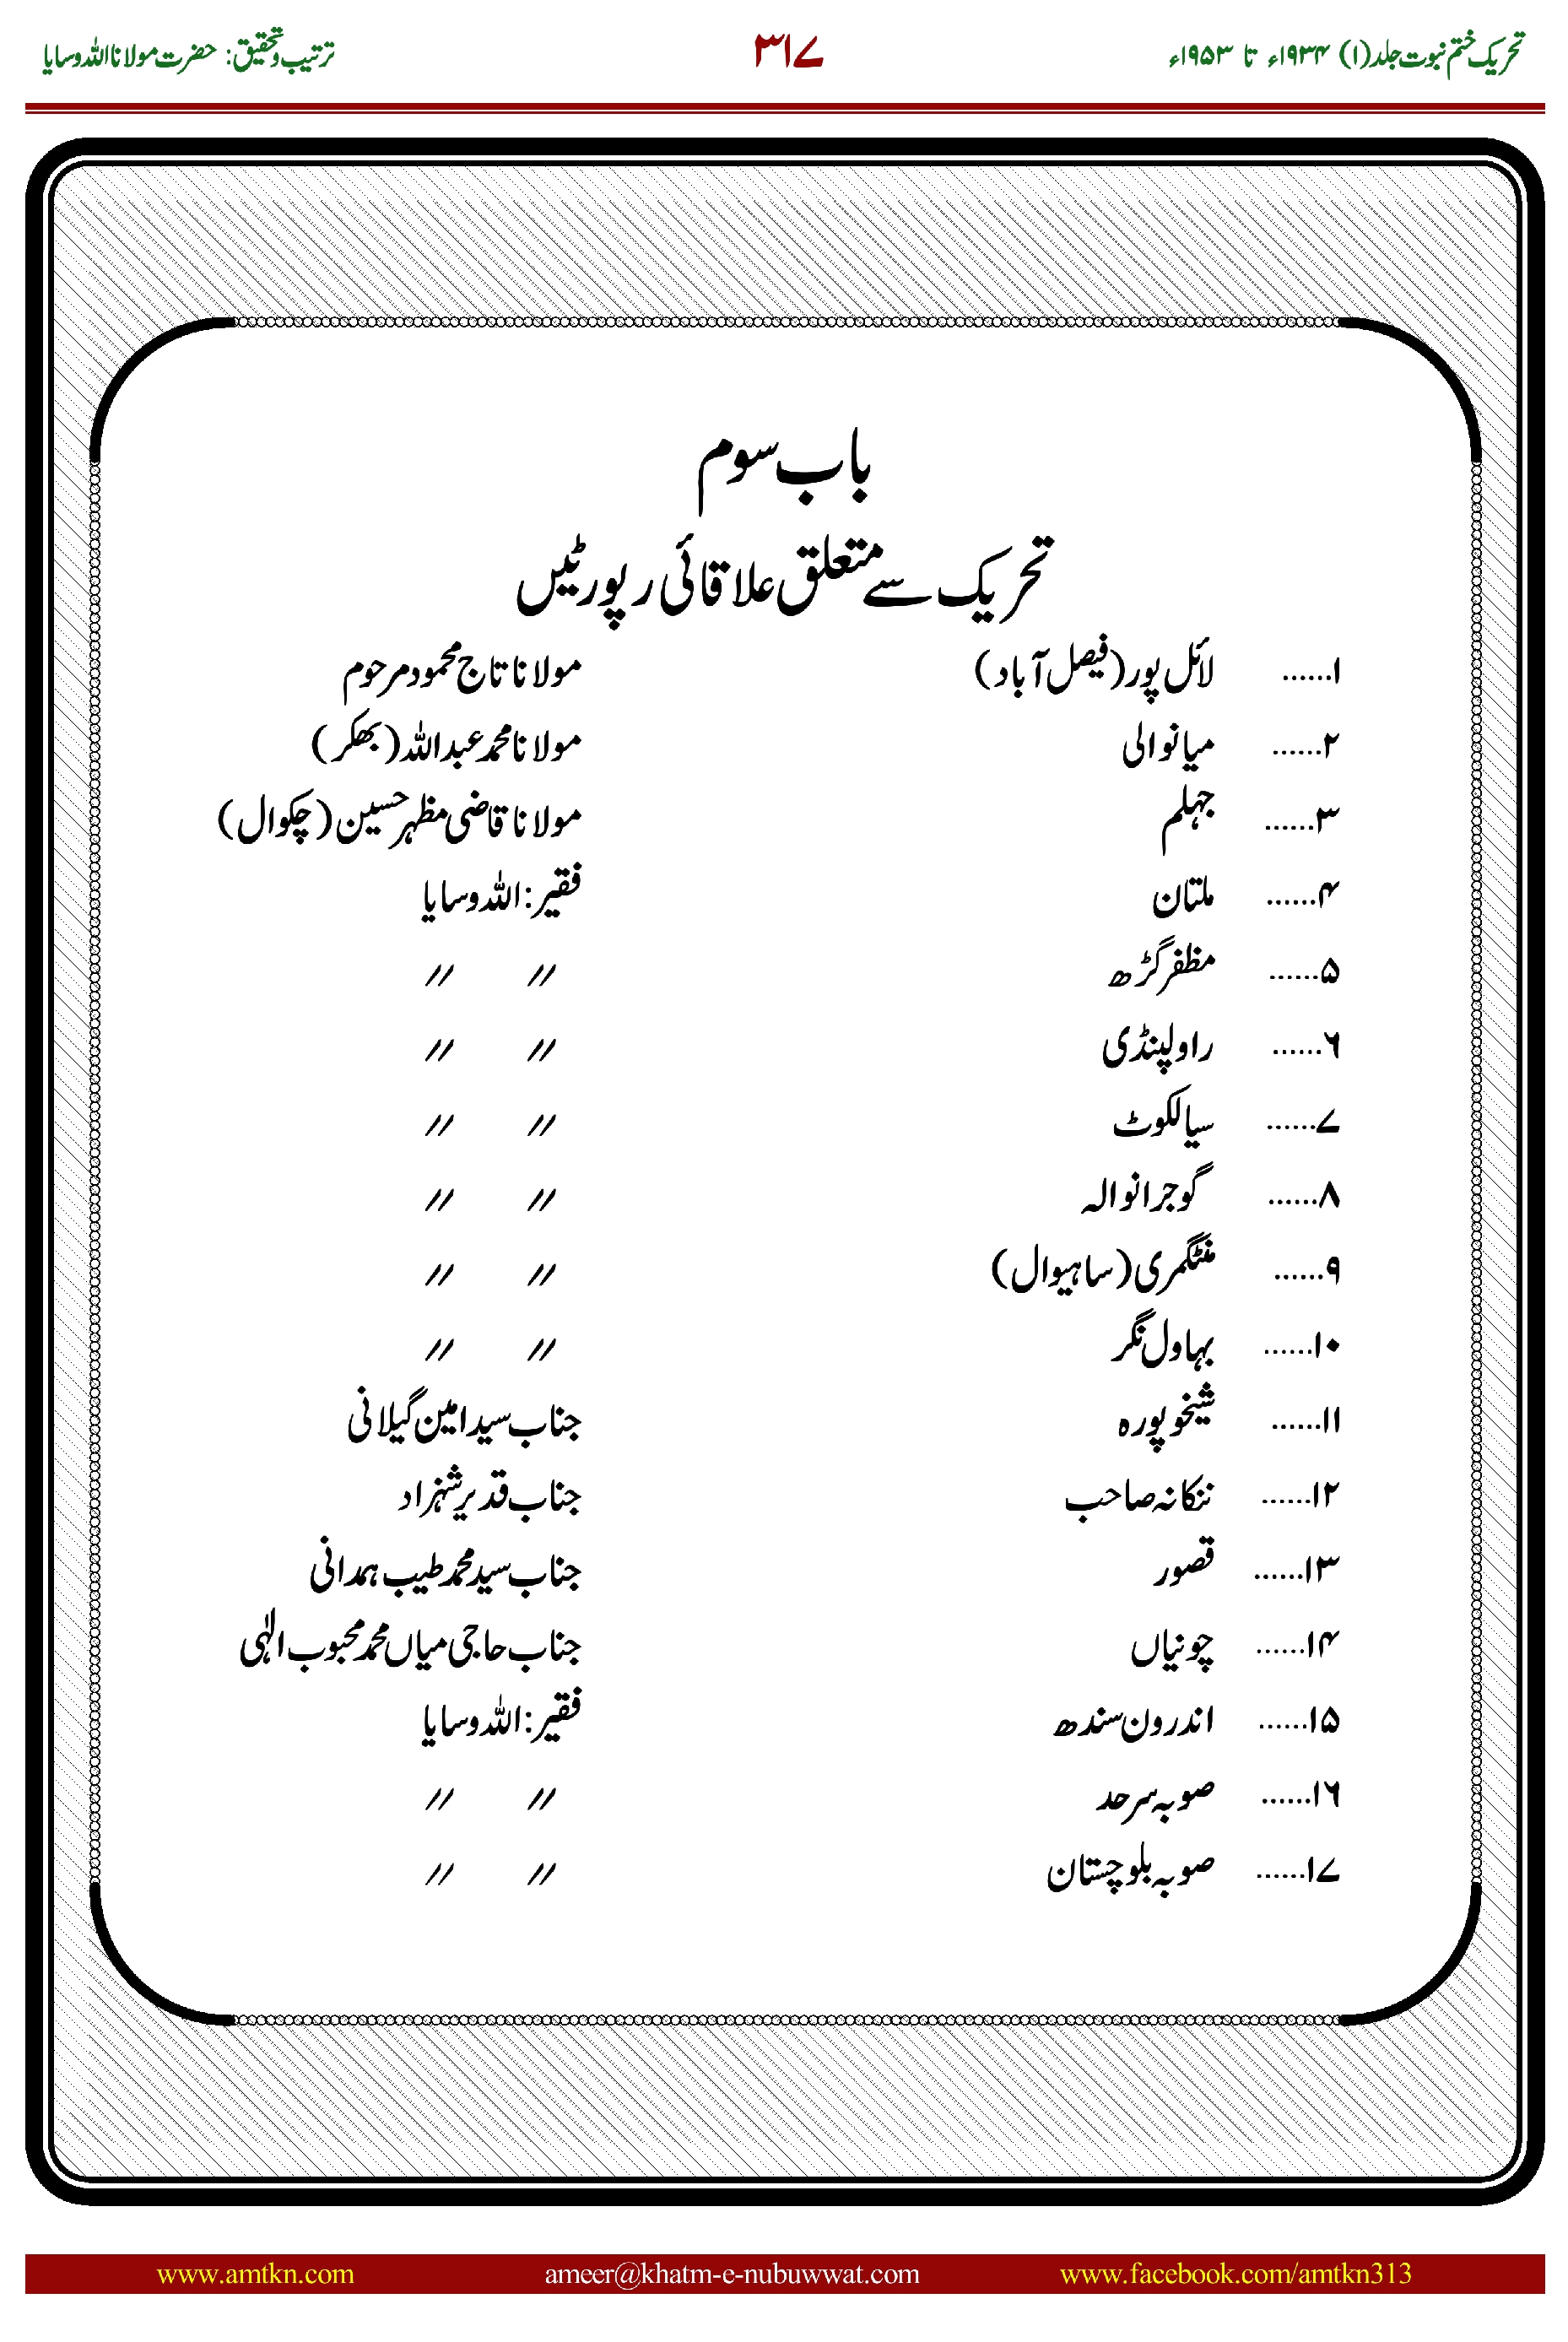 تحریک ختم نبوت جلد (۱) ۱۹۳۴ء تا ۱۹۵۳ء ۳۱۷ ترتیب و تحقیق: حضرت مولانا اللہ وسایا
باب سوم
تحریک سے متعلق علاقائی رپورٹیں
۱...... لائل پور (فیصل آباد) مولانا تاج محمود مرحوم
۲...... میانوالی مولانا محمد عبداللہ (بھکر)
۳...... جہلم مولانا قاضی مظہر حسین (چکوال)
۴...... ملتان فقیر: اللہ وسایا
۵...... مظفر گڑھ // //
۶...... راولپنڈی // //
۷...... سیالکوٹ // //
۸...... گوجرانوالہ // //
۹...... منٹگمری (ساہیوال) // //
۱۰...... بہاول نگر // //
۱۱...... شیخوپورہ جناب سید امین گیلانی
۱۲...... ننکانہ صاحب جناب قدیر شہزاد
۱۳...... قصور جناب سید محمد طیب ہمدانی
۱۴...... چونیاں جناب حاجی میاں محمد محبوب الٰہی
۱۵...... اندرون سندھ فقیر: اللہ وسایا
۱۶...... صوبہ سرحد // //
۱۷...... صوبہ بلوچستان // //
www.amtkn.com ameer@khatm-e-nubuwwat.com www.facebook.com/amtkn313